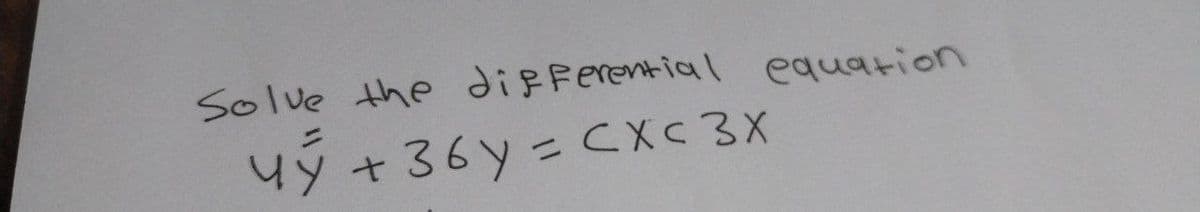 Solve the differential equation
4ÿ + 36y = CXC 3X